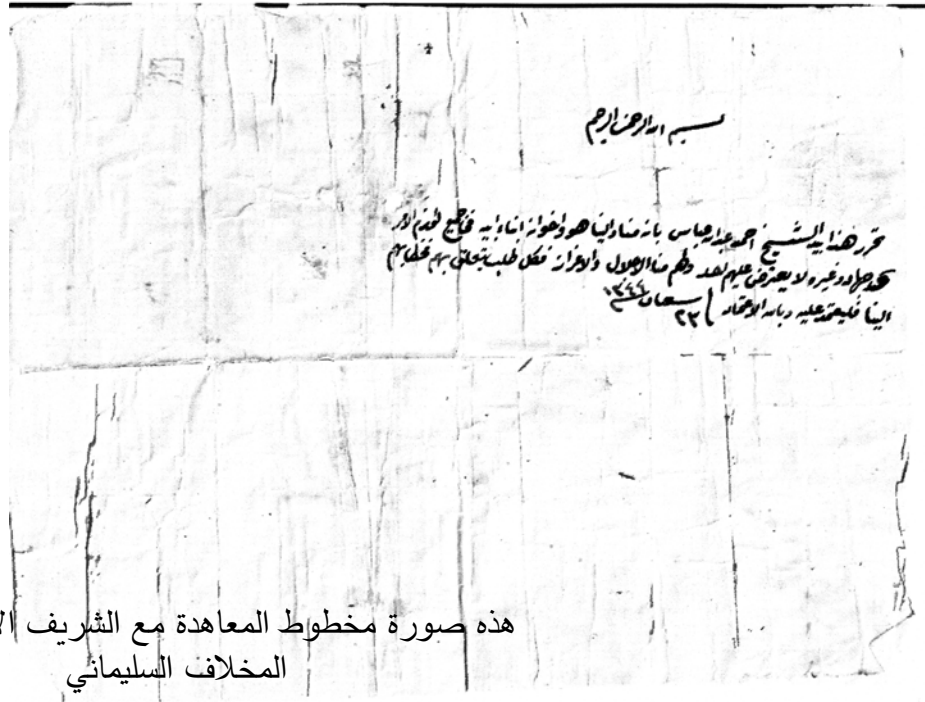 بسم الله الرحمن الرحيم
تحرر هذا بيد الشيخ احمد عبدالله عباس بانه منا والينا هو واخوانه ابناء ابيه في جميع
وغيره لا يعترض عليهم احد ولهم منا الاجلال والاعزاز فكل طلب يتعلق بهم
الينا فليعتمد عليه وبالله الاعتماد ٢٣ شعبان ١٣٤٤
هذه صورة مخطوط المعاهدة مع الشريف
المخلاف السليماني